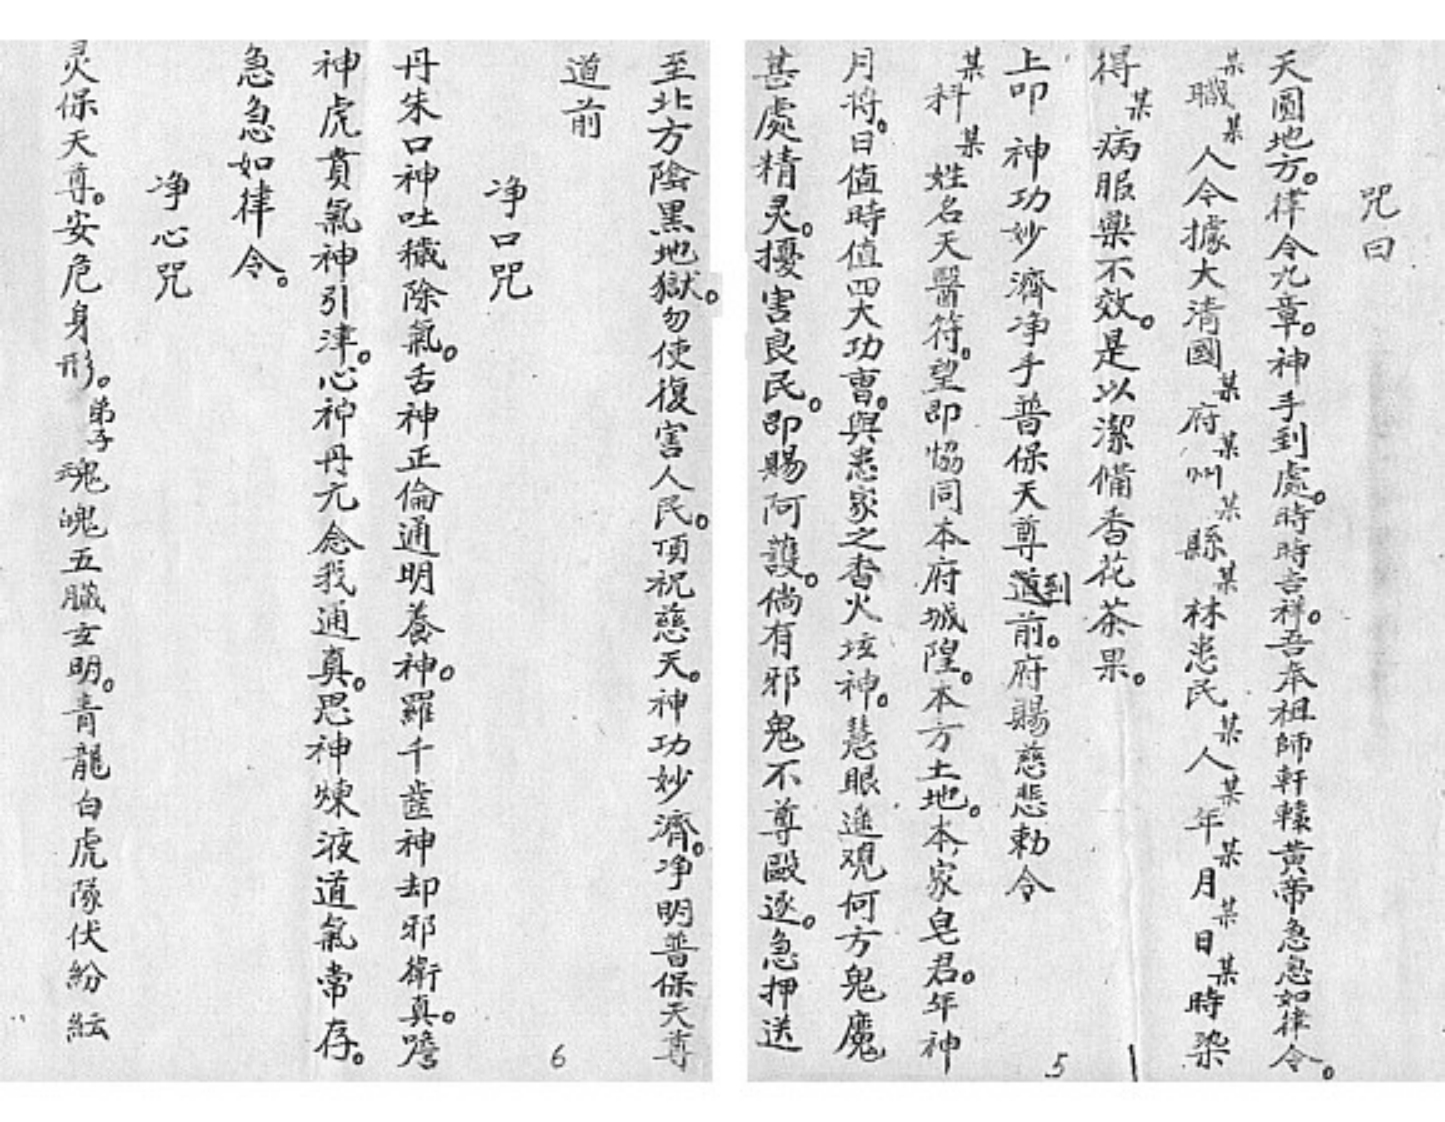 咒曰
天圓地方。律令九章。神手到處。時時吉祥。吾奉祖師軒轅黃帝急急如律令。
某職某人今據大清國某府某州某縣某林患民某人某年某月某日某時染
得某病服藥不效。是以潔備香花茶果。
上叩神功妙濟净手普保天尊道到前。府賜慈悲勅令
某科某姓名天醫符。望即恊同本府城隍。本方土地。本家皂君。年神
月将。日值時值四大功曹。與患家之香火垓神。慧眼進观何方鬼魔
甚處精灵。擾害良民。即賜阿護。倘有邪鬼不尊毆逐。急押送
至北方陰黑地獄。勿使復害人民。頂祝慈天。神功妙濟。净明普保天尊
道前
净口咒
丹朱口神吐穢除氣。舌神正倫通明養神。羅千齒神却邪衛真。喉
神虎賁氣神引津。心神丹元念我通真。思神煉液道氣常存。
急急如律令。
净心咒
灵保天尊。安危身形。弟子魂魄五臟玄明。青龍白虎隊伏紛紜
5
6